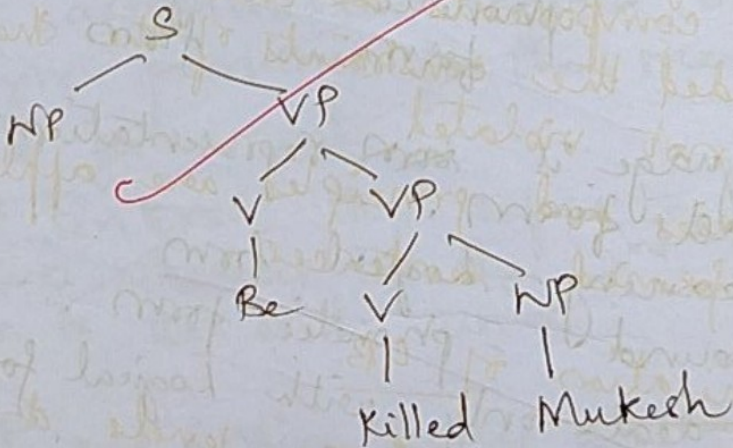 S
NP VP
V VP
Be V NP
Killed Mukesh